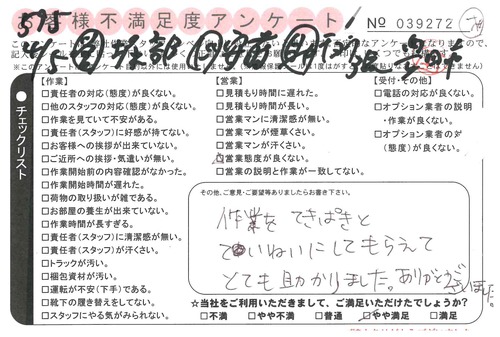 お客様不満足度アンケート
No 039272
575
チェックリスト
【作業】
□責任者の対応(態度)が良くない。
□他のスタッフの対応(態度)が良くない。
□作業を見ていて不安がある。
□責任者(スタッフ)に好感が持てない。
□お客様への挨拶が出来ていない。
□ご近所への挨拶・気遣いが無い。
□作業開始前の内容確認がなかった。
□作業開始時間が遅れた。
□荷物の取り扱いが雑である。
□お部屋の養生が出来ていない。
□作業時間が長すぎる。
□責任者(スタッフ)に清潔感が無い。
□責任者(スタッフ)が汗くさい。
□トラックが汚い。
□梱包資材が汚い。
□運転が不安(下手)である。
□靴下の履き替えをしてない。
□スタッフにやる気がみられない。
【営業】
□見積もり時間に遅れた。
□見積もり時間が長い。
□営業マンに清潔感が無い。
□営業マンが煙草くさい。
□営業マンが汗くさい。
□営業態度が良くない。
□営業の説明と作業が一致してない。
【受付・その他】
□電話の対応が良くない。
□オプション業者の説明
・作業が良くない。
□オプション業者の対
(態度)が良くない。
その他、ご意見・ご要望等ありましたらお書き下さい。
作業をてきぱきと
ていねいにしてもらえて
とても助かりました。ありがとうございました。
☆当社をご利用いただきまして、ご満足いただけたでしょうか?
□不満 □やや不満 □普通 □やや満足 □満足